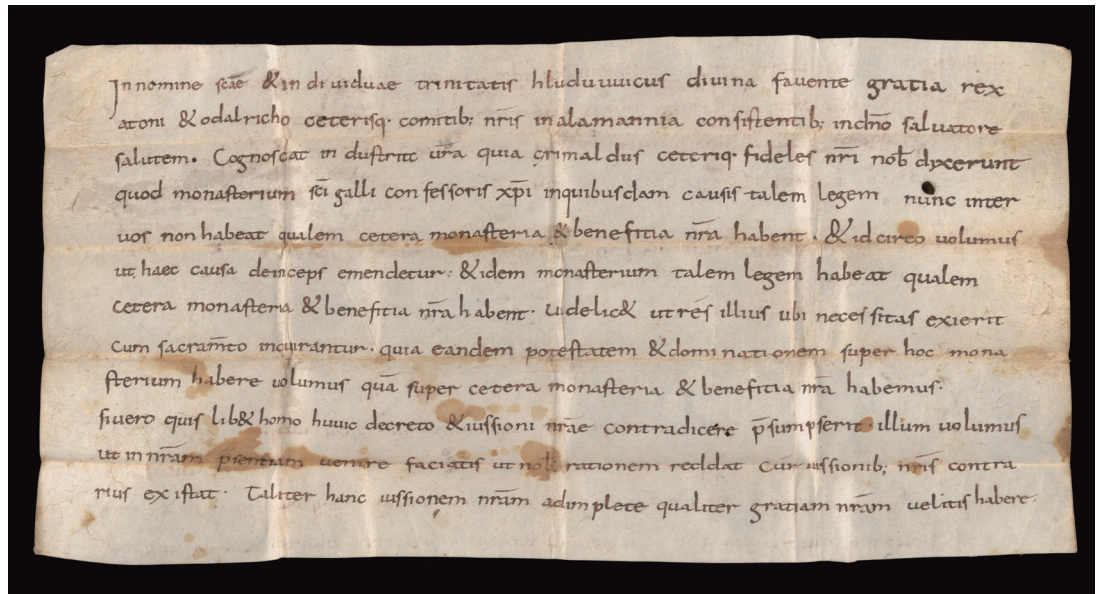 In nomine scāe & in diuiduae trinitatis hluduuuicus diuina fauente gratia rex
atoni & odalricho ceterisq· comitib; nr̄is in alamannia consistentib; in dn̄o saluatore
salutem. Cognoscat in dustriae ur̄a quia grimaldus ceteriq· fideles nr̄i nob̄ dixerunt
quod monasterium sc̄i galli confessoris xp̄i in quibusdam causis talem legem nunc inter
uos non habeat qualem cetera monasteria & benefitia nr̄a habent. & id circo uolumus
ut haec causa deinceps emendetur: & idem monasterium talem legem habeat qualem
cetera monasteria & benefitia nr̄a habent· uidelic& ut res illius ubi necessitas exierit
cum sacram̄to inquirantur· quia eandem potestatem & dominationem super hoc mona
sterium habere uolumus quā super cetera monasteria & benefitia nr̄a habemus·
siuero quis lib& homo huuic decreto & iussioni nr̄ae contradicere p̄sumpserit illum uolumus
ut in nr̄am p̄sentiam uenire faciatis ut nob̄ rationem reddat cur iussionib; nr̄is contra
rius existat· Taliter hanc iussionem nr̄am adimplete qualiter gratiam nr̄am uelitis habere·